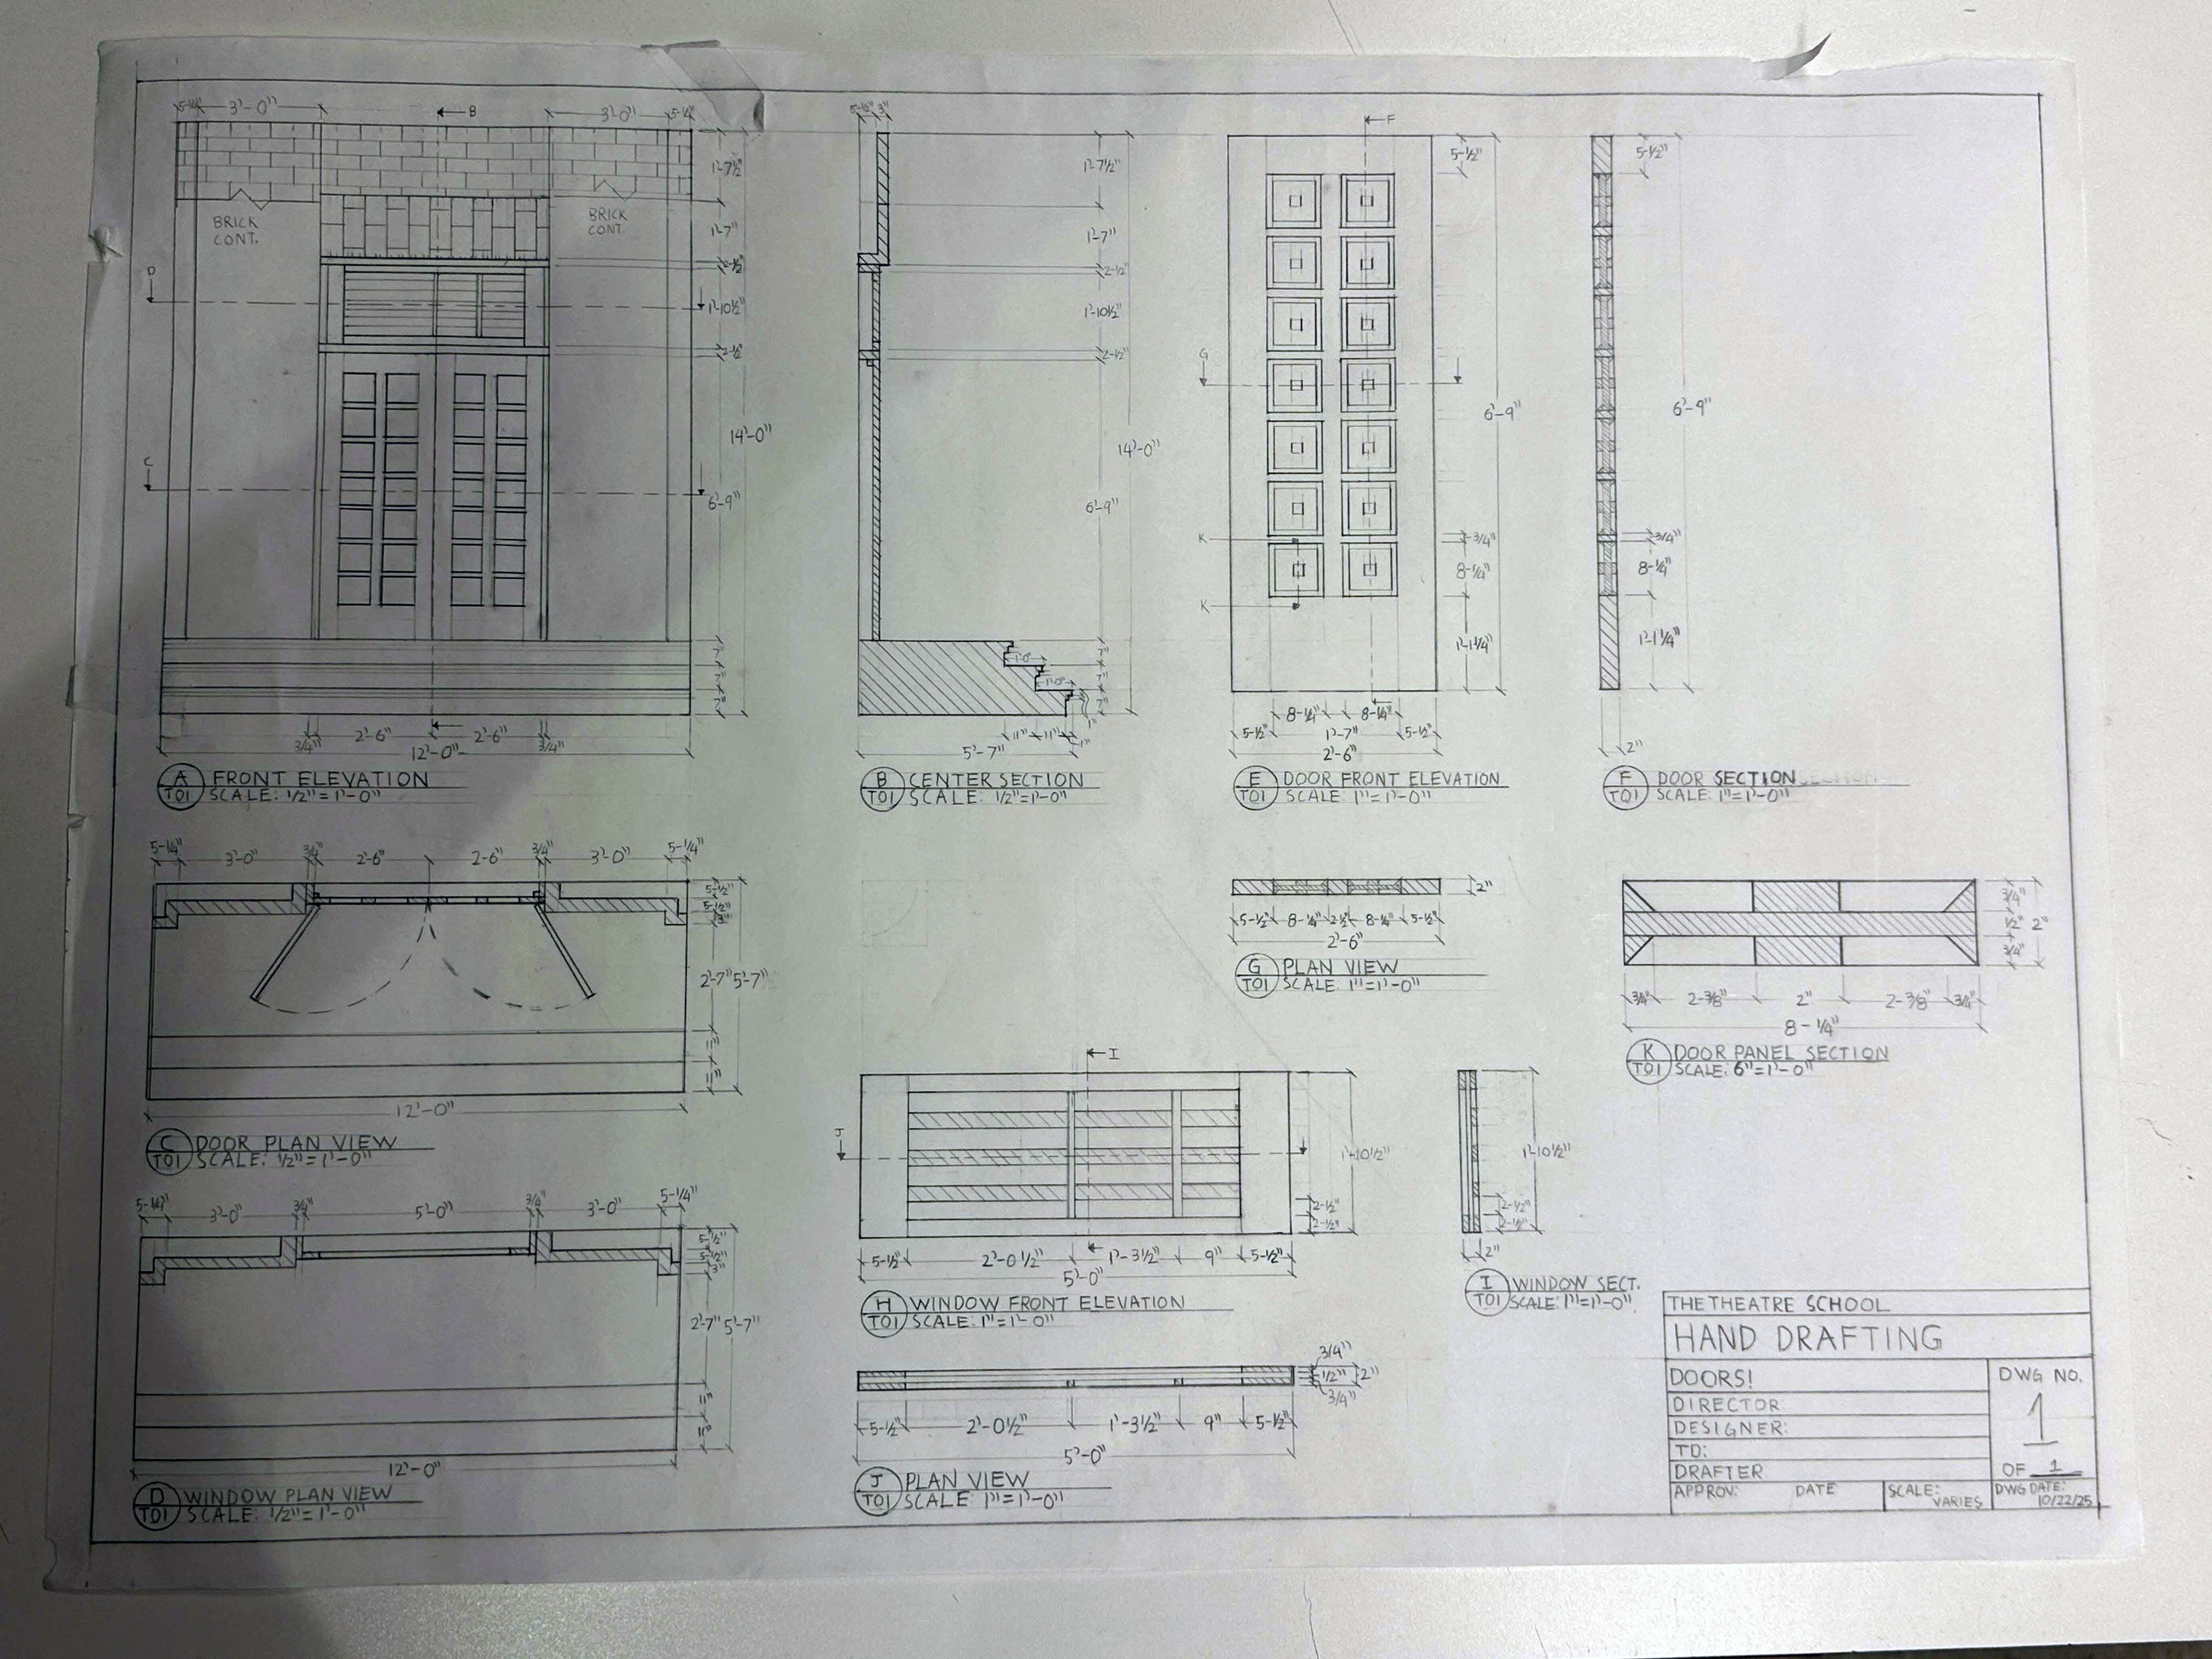 5-1/4"
3'-0"
B
3'-0"
5-1/4"
1'-7 1/2"
BRICK
CONT.
BRICK
CONT.
1'-7"
2-1/2"
D
1'-10 1/2"
2-1/2"
14'-0"
C
6'-9"
7"
7"
7"
3/4"
2'-6"
2'-6"
3/4"
12'-0"
A
T01
FRONT ELEVATION
SCALE: 1/2"=1'-0"
5-1/2"
3"
1'-7 1/2"
1'-7"
2-1/2"
1'-10 1/2"
2-1/2"
14'-0"
6'-9"
1'-0"
1'-0"
7"
7"
7"
1"
11"
11"
1"
5'-7"
B
T01
CENTER SECTION
SCALE: 1/2"=1'-0"
F
5-1/2"
G
6'-9"
K
3/4"
8-1/4"
K
1'-1 1/4"
8-1/4"
8-1/4"
5-1/2"
1'-7"
5-1/2"
2'-6"
E
T01
DOOR FRONT ELEVATION
SCALE: 1"=1'-0"
5-1/2"
6'-9"
3/4"
8-1/4"
1'-1 1/4"
2"
F
T01
DOOR SECTION
SCALE: 1"=1'-0"
5-1/4"
3'-0"
3/4"
2'-6"
2-6"
3/4"
3'-0"
5-1/4"
5-1/2"
5-1/2"
3"
2'-7"
5'-7"
11"
11"
12'-0"
C
T01
DOOR PLAN VIEW
SCALE: 1/2"=1'-0"
2"
5-1/2"
8-1/4"
2-1/2"
8-1/4"
5-1/2"
2'-6"
G
T01
PLAN VIEW
SCALE: 1"=1'-0"
3/4"
1/2"
2"
3/4"
3/4"
2-3/8"
2"
2-3/8"
3/4"
8-1/4"
K
T01
DOOR PANEL SECTION
SCALE: 6"=1'-0"
5-1/4"
3'-0"
3/4"
5'-0"
3/4"
3'-0"
5-1/4"
5-1/2"
5-1/2"
3"
2'-7"
5'-7"
11"
11"
12'-0"
D
T01
WINDOW PLAN VIEW
SCALE: 1/2"=1'-0"
I
J
1'-10 1/2"
2-1/2"
2-1/2"
5-1/2"
2'-0 1/2"
1'-3 1/2"
9"
5-1/2"
5'-0"
H
T01
WINDOW FRONT ELEVATION
SCALE: 1"=1'-0"
1'-10 1/2"
2-1/2"
2-1/2"
2"
I
T01
WINDOW SECT.
SCALE: 1"=1'-0"
3/4"
1/2"
2"
3/4"
5-1/2"
2'-0 1/2"
1'-3 1/2"
9"
5-1/2"
5'-0"
J
T01
PLAN VIEW
SCALE: 1"=1'-0"
THE THEATRE SCHOOL
HAND DRAFTING
DOORS!
DIRECTOR:
DESIGNER:
TD:
DRAFTER
APPROV:
DATE
SCALE:
VARIES
DWG NO.
1
OF 1
DWG DATE:
10/22/25